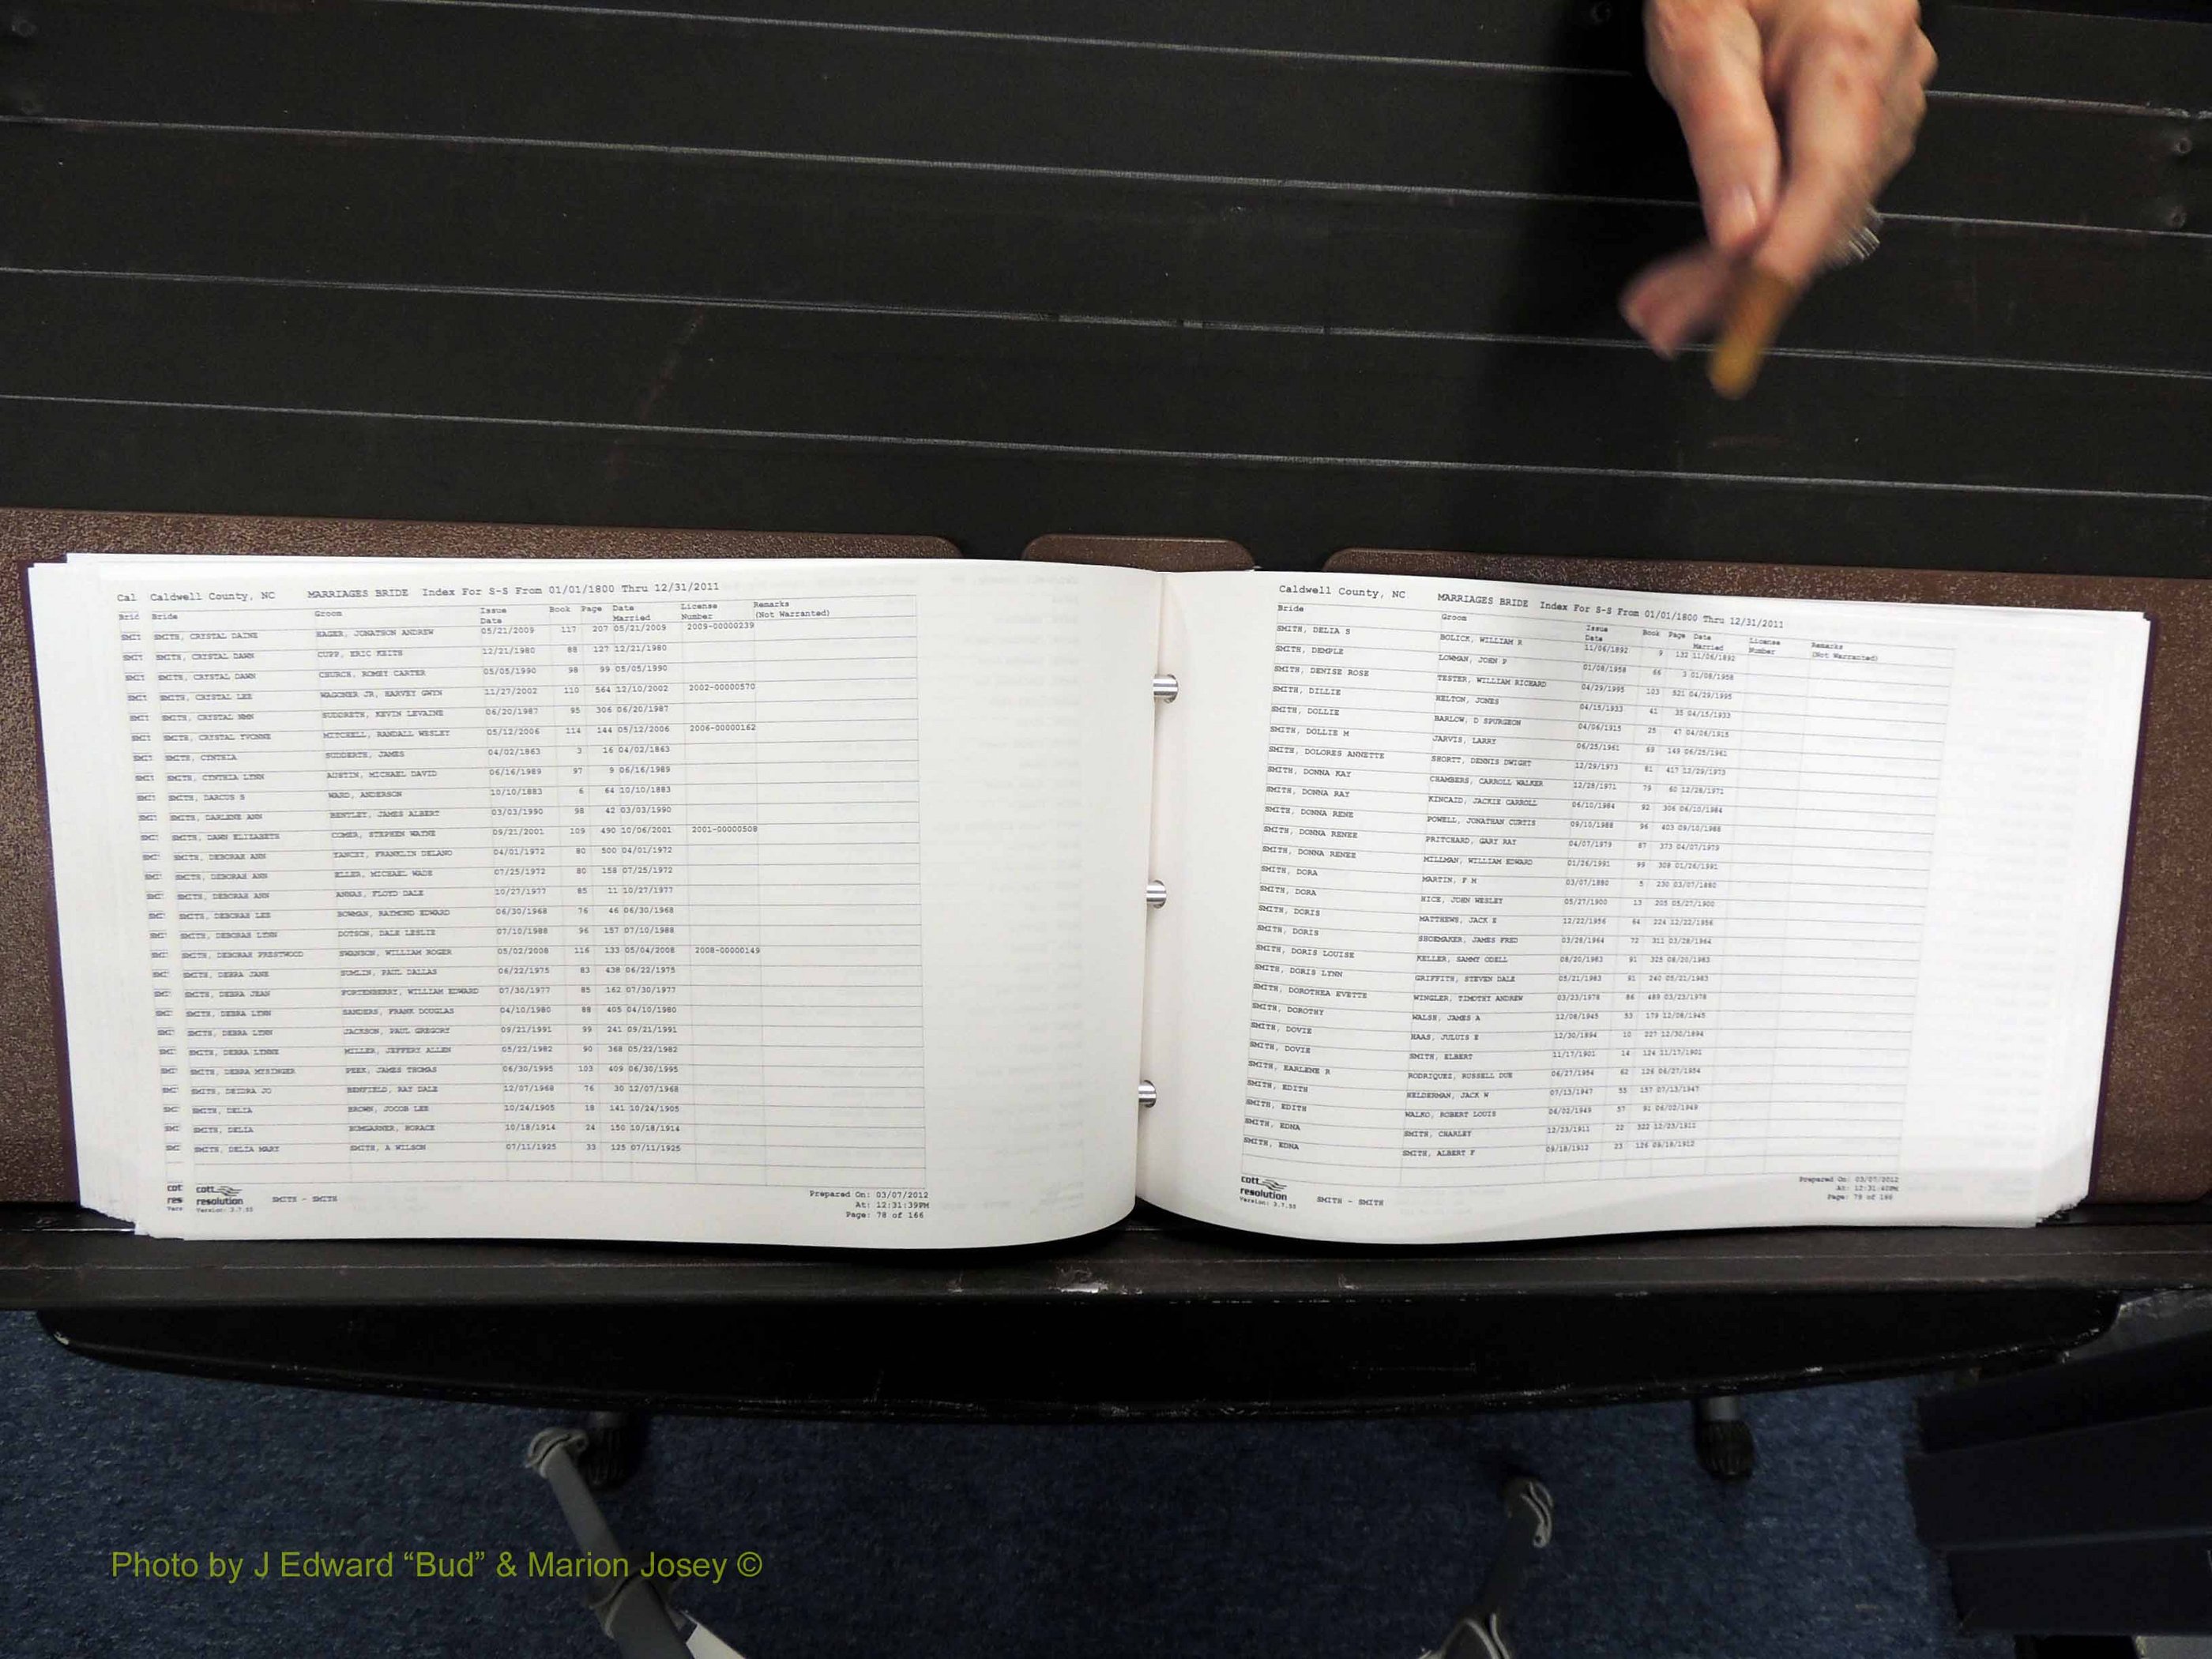 Cal Caldwell County, NC MARRIAGES BRIDE Index For S-S From 01/01/1800 Thru 12/31/2011
Brid Bride Groom Issue Date Book Page Date Married License Number Remarks (Not Warranted)
SMIT SMITH, CRYSTAL DAINE HAGER, JONATHON ANDREW 05/21/2009 117 207 05/21/2009 2009-00000239
SMIT SMITH, CRYSTAL DAWN CUPP, ERIC KEITH 12/21/1980 88 127 12/21/1980
SMIT SMITH, CRYSTAL DAWN CHURCH, ROMEY CARTER 05/05/1990 98 99 05/05/1990
SMIT SMITH, CRYSTAL LEE WAGONER JR, HARVEY GWYN 11/27/2002 110 564 12/10/2002 2002-00000570
SMIT SMITH, CRYSTAL NMN SUDDRETH, KEVIN LEVAINE 06/20/1987 95 306 06/20/1987
SMIT SMITH, CRYSTAL YVONNE MITCHELL, RANDALL WESLEY 05/12/2006 114 144 05/12/2006 2006-00000162
SMIT SMITH, CYNTHIA SUDDERTH, JAMES 04/02/1863 3 16 04/02/1863
SMIT SMITH, CYNTHIA LYNN AUSTIN, MICHAEL DAVID 06/16/1989 97 9 06/16/1989
SMIT SMITH, DARCUS S WARD, ANDERSON 10/10/1883 6 64 10/10/1883
SMIT SMITH, DARLENE ANN BENTLEY, JAMES ALBERT 03/03/1990 98 42 03/03/1990
SMI SMITH, DAWN ELIZABETH COMER, STEPHEN WAYNE 09/21/2001 109 490 10/06/2001 2001-00000508
SMI SMITH, DEBORAH ANN YANCEY, FRANKLIN DELANO 04/01/1972 80 500 04/01/1972
SMI SMITH, DEBORAH ANN ELLER, MICHAEL WADE 07/25/1972 80 158 07/25/1972
SMI SMITH, DEBORAH ANN ANNAS, FLOYD DALE 10/27/1977 85 11 10/27/1977
SMI SMITH, DEBORAH LEE BOWMAN, RAYMOND EDWARD 06/30/1968 76 46 06/30/1968
SMI SMITH, DEBORAH LYNN DOTSON, DALE LESLIE 07/10/1988 96 157 07/10/1988
SMI SMITH, DEBORAH PRESTWOOD SWANSON, WILLIAM ROGER 05/02/2008 116 133 05/04/2008 2008-00000149
SMI SMITH, DEBRA JANE SUMLIN, PAUL DALLAS 06/22/1975 83 438 06/22/1975
SMI SMITH, DEBRA JEAN FORTENBERRY, WILLIAM EDWARD 07/30/1977 85 162 07/30/1977
SMI SMITH, DEBRA LYNN SANDERS, FRANK DOUGLAS 04/10/1980 88 405 04/10/1980
SMI SMITH, DEBRA LYNN JACKSON, PAUL GREGORY 09/21/1991 99 241 09/21/1991
SMI SMITH, DEBRA LYNNE MILLER, JEFFERY ALLEN 05/22/1982 90 368 05/22/1982
SMI SMITH, DEBRA MYSINGER PEEK, JAMES THOMAS 06/30/1995 103 409 06/30/1995
SMI SMITH, DEIDRA JO BENFIELD, RAY DALE 12/07/1968 76 30 12/07/1968
SMI SMITH, DELIA BROWN, JOCOB LEE 10/24/1905 18 141 10/24/1905
SMI SMITH, DELIA BUMGARNER, HORACE 10/18/1914 24 150 10/18/1914
SMI SMITH, DELIA MARY SMITH, A WILSON 07/11/1925 33 125 07/11/1925
cot cott
res resolution SMITH - SMITH
Vers Version: 3.7.55
Prepared On: 03/07/2012
At: 12:31:39PM
Page: 78 of 166
Caldwell County, NC MARRIAGES BRIDE Index For S-S From 01/01/1800 Thru 12/31/2011
Bride Groom Issue Date Book Page Date Married License Number Remarks (Not Warranted)
SMITH, DELIA S BOLICK, WILLIAM R 11/06/1892 9 132 11/06/1892
SMITH, DEMPLE LOWMAN, JOHN P 01/08/1958 66 3 01/08/1958
SMITH, DENISE ROSE TESTER, WILLIAM RICHARD 04/29/1995 103 521 04/29/1995
SMITH, DILLIE HELTON, JONES 04/15/1933 41 35 04/15/1933
SMITH, DOLLIE BARLOW, D SPURGEON 04/06/1915 25 47 04/06/1915
SMITH, DOLLIE M JARVIS, LARRY 06/25/1961 69 149 06/25/1961
SMITH, DOLORES ANNETTE SHORTT, DENNIS DWIGHT 12/29/1973 81 417 12/29/1973
SMITH, DONNA KAY CHAMBERS, CARROLL WALKER 12/28/1971 79 60 12/28/1971
SMITH, DONNA RAY KINCAID, JACKIE CARROLL 06/10/1984 92 306 06/10/1984
SMITH, DONNA RENE POWELL, JONATHAN CURTIS 09/10/1988 96 403 09/10/1988
SMITH, DONNA RENEE PRITCHARD, GARY RAY 04/07/1979 87 373 04/07/1979
SMITH, DONNA RENEE MILLMAN, WILLIAM EDWARD 01/26/1991 99 308 01/26/1991
SMITH, DORA MARTIN, F M 03/07/1880 5 230 03/07/1880
SMITH, DORA HICE, JOHN WESLEY 05/27/1900 13 205 05/27/1900
SMITH, DORIS MATTHEWS, JACK E 12/22/1956 64 224 12/22/1956
SMITH, DORIS SHOEMAKER, JAMES FRED 03/28/1964 72 311 03/28/1964
SMITH, DORIS LOUISE KELLER, SAMMY ODELL 08/20/1983 91 325 08/20/1983
SMITH, DORIS LYNN GRIFFITH, STEVEN DALE 05/21/1983 91 240 05/21/1983
SMITH, DOROTHEA EVETTE WINGLER, TIMOTHY ANDREW 03/23/1978 86 489 03/23/1978
SMITH, DOROTHY WALSH, JAMES A 12/08/1945 53 179 12/08/1945
SMITH, DOVIE HAAS, JULUIS E 12/30/1894 10 227 12/30/1894
SMITH, DOVIE SMITH, ELBERT 11/17/1901 14 124 11/17/1901
SMITH, EARLENE R RODRIQUEZ, RUSSELL DUE 06/27/1954 62 126 06/27/1954
SMITH, EDITH HELDERMAN, JACK W 07/13/1947 55 157 07/13/1947
SMITH, EDITH WALKO, ROBERT LOUIS 06/02/1949 57 91 06/02/1949
SMITH, EDNA SMITH, CHARLEY 12/23/1911 22 322 12/23/1911
SMITH, EDNA SMITH, ALBERT F 09/18/1912 23 126 09/18/1912
cott
resolution SMITH - SMITH
Version: 3.7.55
Prepared On: 03/07/2012
At: 12:31:40PM
Page: 78 of 166
Photo by J Edward “Bud” & Marion Josey ©